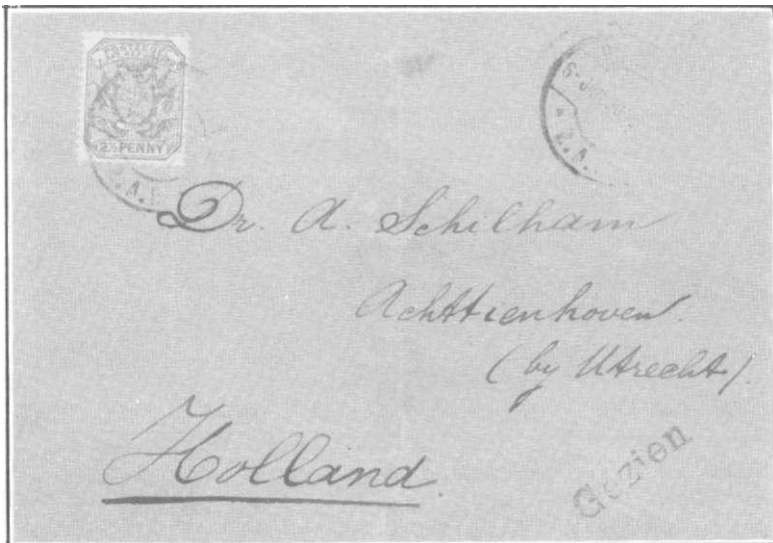 2½ PENNY
Z.A.
Dr. A. Schilham
Achttienhoven.
(by Utrecht).
Holland.
Gezien